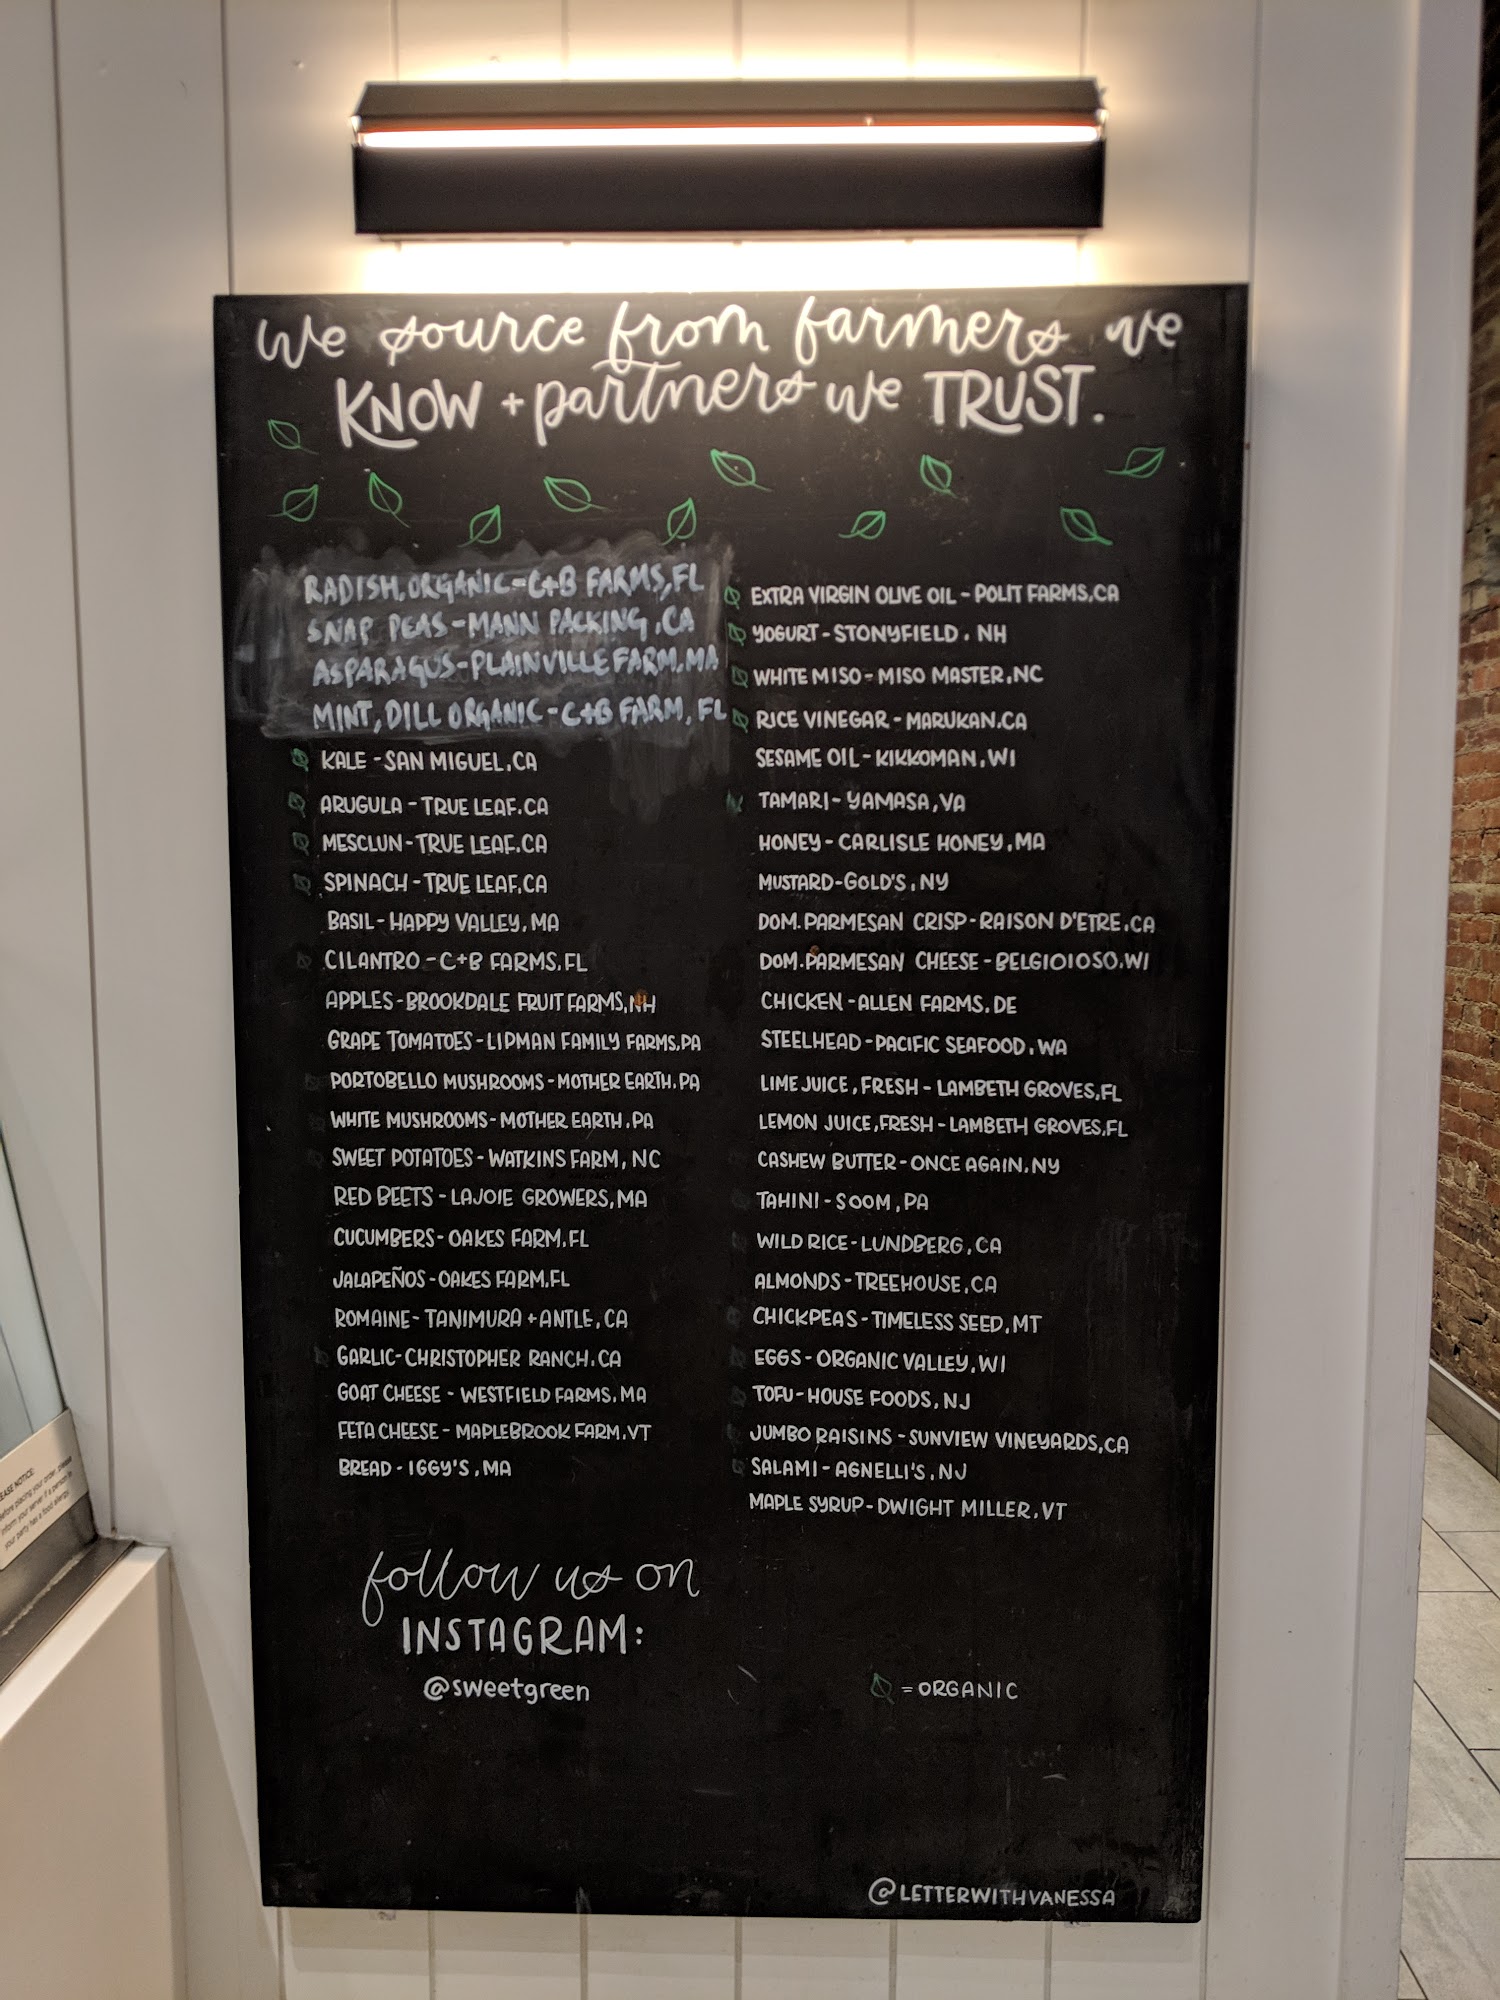 We source from farmers we
KNOW + partners we TRUST.
RADISH, ORGANIC-C+B FARMS, FL
SNAP PEAS-MANN PACKING, CA
ASPARAGUS-PLAINVILLE FARM, MA
MINT, DILL ORGANIC-C+B FARM, FL
KALE - SAN MIGUEL, CA
ARUGULA - TRUE LEAF, CA
MESCLUN - TRUE LEAF, CA
SPINACH - TRUE LEAF, CA
BASIL - HAPPY VALLEY, MA
CILANTRO - C+B FARMS, FL
APPLES - BROOKDALE FRUIT FARMS, NH
GRAPE TOMATOES - LIPMAN FAMILY FARMS, PA
PORTOBELLO MUSHROOMS - MOTHER EARTH, PA
WHITE MUSHROOMS - MOTHER EARTH, PA
SWEET POTATOES - WATKINS FARM, NC
RED BEETS - LAJOIE GROWERS, MA
CUCUMBERS - OAKES FARM, FL
JALAPEÑOS - OAKES FARM, FL
ROMAINE - TANIMURA + ANTLE, CA
GARLIC - CHRISTOPHER RANCH, CA
GOAT CHEESE - WESTFIELD FARMS, MA
FETA CHEESE - MAPLEBROOK FARM, VT
BREAD - IGGY'S, MA
EXTRA VIRGIN OLIVE OIL - POLIT FARMS, CA
YOGURT - STONYFIELD, NH
WHITE MISO - MISO MASTER, NC
RICE VINEGAR - MARUKAN, CA
SESAME OIL - KIKKOMAN, WI
TAMARI - YAMASA, VA
HONEY - CARLISLE HONEY, MA
MUSTARD - GOLD'S, NY
DOM. PARMESAN CRISP - RAISON D'ETRE, CA
DOM. PARMESAN CHEESE - BELGIOIOSO, WI
CHICKEN - ALLEN FARMS, DE
STEELHEAD - PACIFIC SEAFOOD, WA
LIME JUICE, FRESH - LAMBETH GROVES, FL
LEMON JUICE, FRESH - LAMBETH GROVES, FL
CASHEW BUTTER - ONCE AGAIN, NY
TAHINI - SOOM, PA
WILD RICE - LUNDBERG, CA
ALMONDS - TREEHOUSE, CA
CHICKPEAS - TIMELESS SEED, MT
EGGS - ORGANIC VALLEY, WI
TOFU - HOUSE FOODS, NJ
JUMBO RAISINS - SUNVIEW VINEYARDS, CA
SALAMI - AGNELLI'S, NJ
MAPLE SYRUP - DWIGHT MILLER, VT
follow us on
INSTAGRAM:
@sweetgreen
= ORGANIC
@LETTERWITHVANESSA
NOTICE:
before placing your order, please
inform your server if a person in
your party has a food allergy.